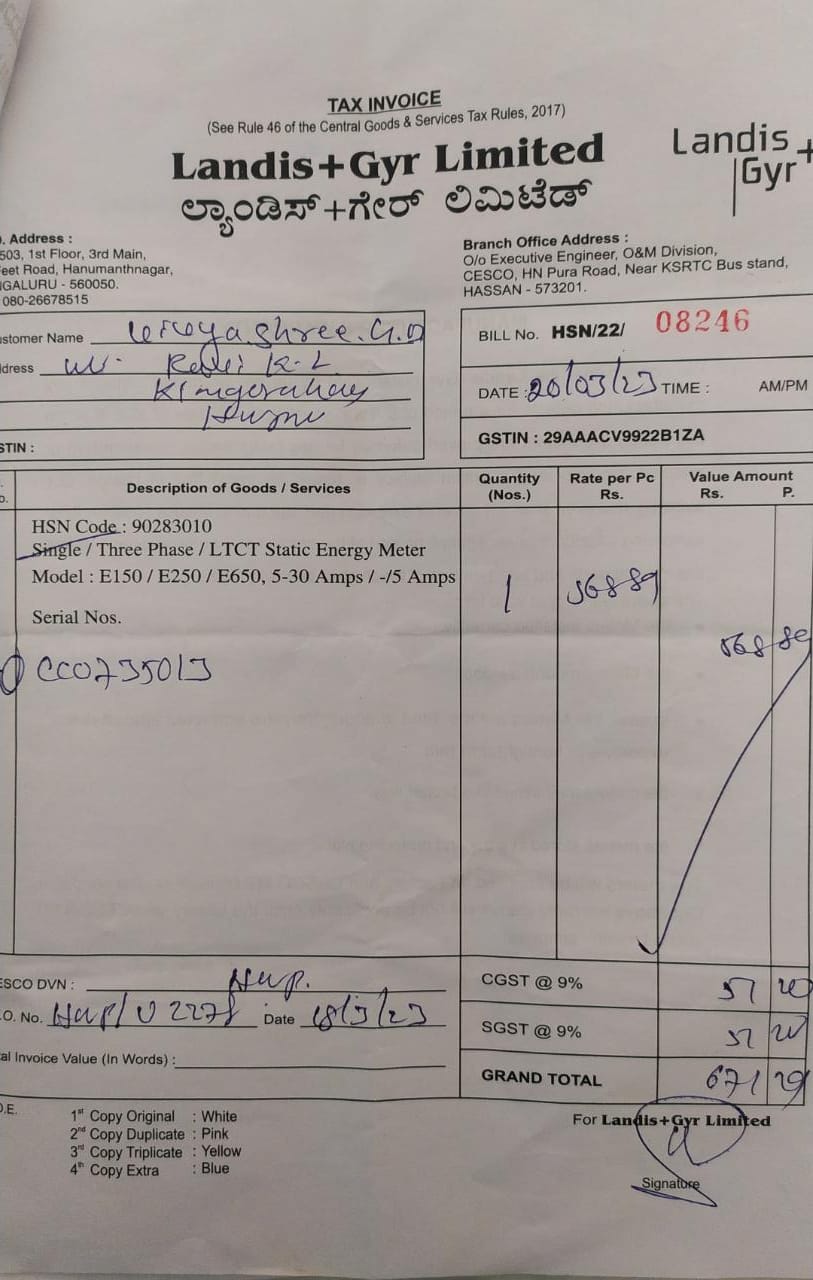 TAX INVOICE
(See Rule 46 of the Central Goods & Services Tax Rules, 2017)
Landis+Gyr Limited
ಲ್ಯಾಂಡಿಸ್+ಗೇರ್ ಲಿಮಿಟೆಡ್
Landis+
Gyr
. Address :
503, 1st Floor, 3rd Main,
eet Road, Hanumanthnagar,
GALURU - 560050.
080-26678515
Branch Office Address :
O/o Executive Engineer, O&M Division,
CESCO, HN Pura Road, Near KSRTC Bus stand,
HASSAN - 573201.
ustomer Name
dress
STIN :
BILL No. HSN/22/ 08246
DATE : 20/03/23 TIME : AM/PM
GSTIN : 29AAACV9922B1ZA
Description of Goods / Services
Quantity (Nos.)
Rate per Pc Rs.
Value Amount Rs. P.
HSN Code : 90283010
Single / Three Phase / LTCT Static Energy Meter
Model : E150 / E250 / E650, 5-30 Amps / -/5 Amps
1 568 89
Serial Nos.
568 89
ESCO DVN :
.O. No. Date
al Invoice Value (In Words) :
CGST @ 9% 51 20
SGST @ 9% 51 20
GRAND TOTAL 671 29
O.E.
1st Copy Original : White
2nd Copy Duplicate : Pink
3rd Copy Triplicate : Yellow
4th Copy Extra : Blue
For Landis+Gyr Limited
Signature